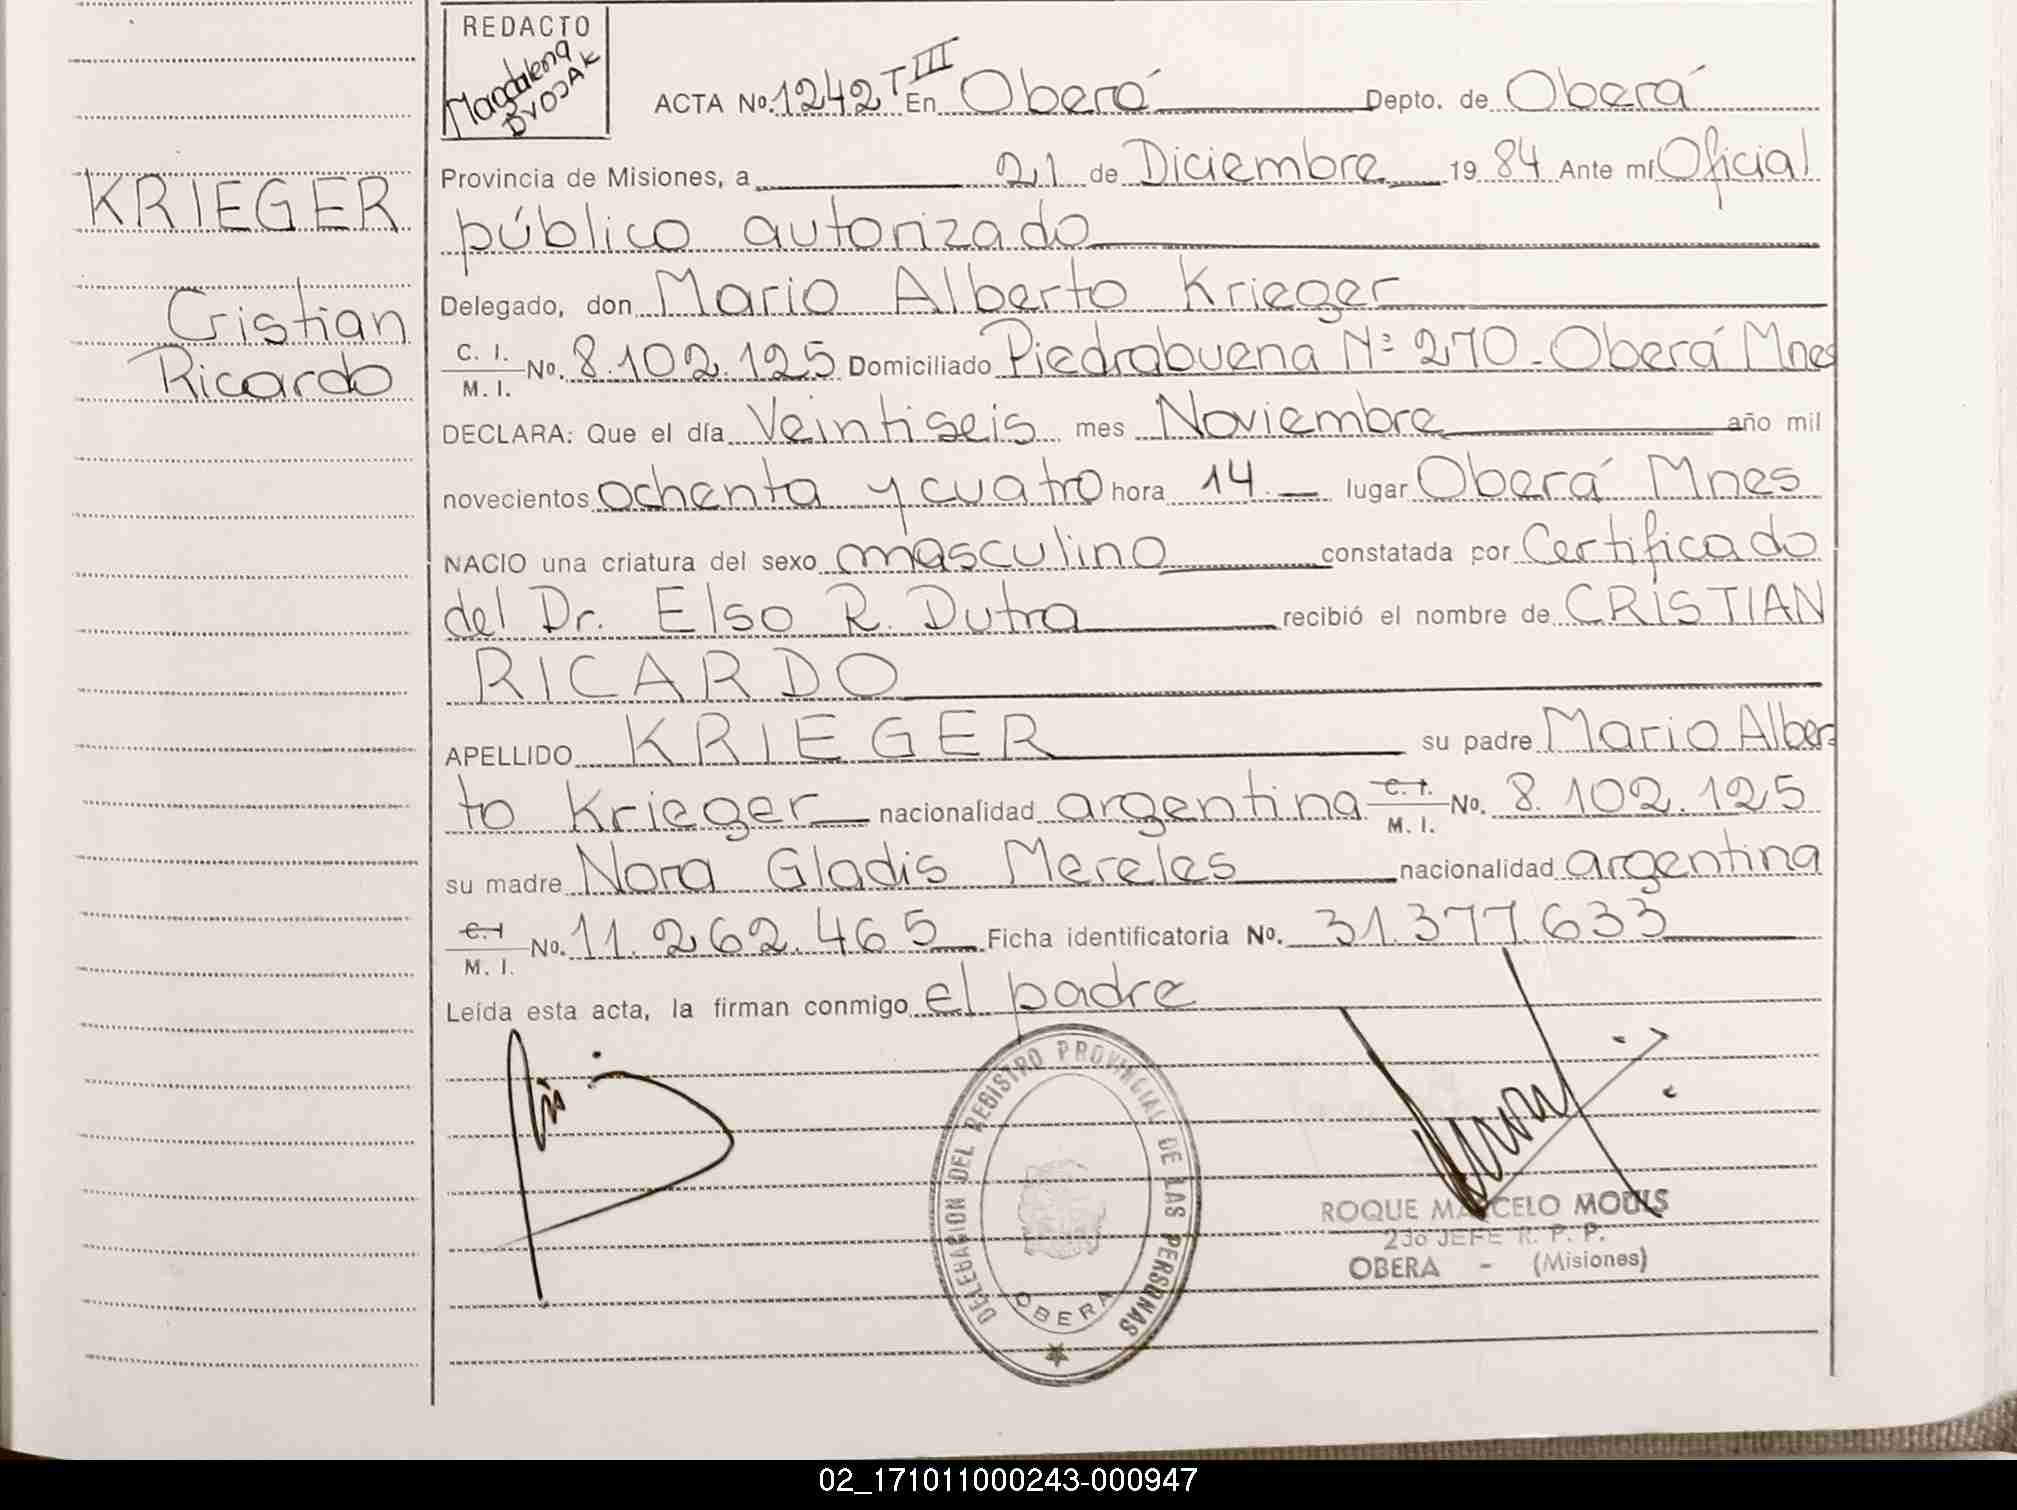 REDACTO
Magdalena
DVOJAK
ACTA No. 1242 T III En Oberá Depto. de Oberá
Provincia de Misiones, a 21 de Diciembre 19 84 Ante mí Oficial
público autorizado
KRIEGER
Cristian
Ricardo
Delegado, don Mario Alberto Krieger
C. I.
M. I. No. 8.102.125 Domiciliado Piedrabuena Nº 270 - Oberá Mnes
DECLARA: Que el día Veintiseis mes Noviembre año mil
novecientos ochenta y cuatro hora 14.- lugar Oberá Mnes
NACIO una criatura del sexo masculino constatada por Certificado
del Dr. Elso R. Dutra recibió el nombre de CRISTIAN
RICARDO
APELLIDO KRIEGER su padre Mario Alber
to Krieger nacionalidad argentina C. I.
M. I. No. 8.102.125
su madre Nora Gladis Mereles nacionalidad argentina
C. I
M. I. No. 11.262.465 Ficha identificatoria No. 31.377.633
Leída esta acta, la firman conmigo el padre
DELEGACION DEL REGISTRO PROVINCIAL DE LAS PERSONAS
OBERA
ROQUE MARCELO MOULS
2do JEFE R. P. P.
OBERA - (Misiones)
02_171011000243-000947